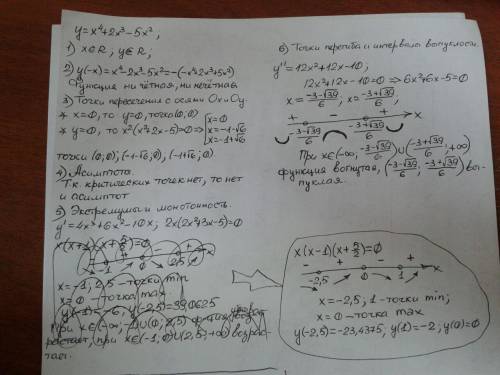 y=x⁴+2x³-5x²,
1) x∈R; y∈R;
2) y(-x)=x⁴-2x³-5x²=-(-x⁴+2x³+5x²)
Функция ни чётная, ни нечётная.
3) Точки пересечения с осями Ох и Оу.
* x=0, то y=0, точка (0;0)
* y=0, то x²(x²+2x-5)=0 ⇒ [x=0
x=-1-√6
x=-1+√6
точки (0;0); (-1-√6;0); (-1+√6;0)
4) Асимптота.
Т.к. критических точек нет, то нет
и асимптот
5) Экстремумы и монотонность.
y'=4x³+6x²-10x; 2x(2x²+3x-5)=0
x=-1; 2,5 - точки min
x=0 - точка max
y(-1)=-6, y(-2,5)=39,0625
6) Точки перегиба и интервалы выпуклости.
y''=12x²+12x-10;
12x²+12x-10=0 ⇒ 6x²+6x-5=0
x=(-3-√39)/6; x=(-3+√39)/6;
+ - + x
(-3-√39)/6 (-3+√39)/6
При x∈(-∞; (-3-√39)/6)∪((-3+√39)/6; +∞)
функция вогнутая, ((-3-√39)/6; (-3+√39)/6) вы-
пуклая.
x(x-1)(x+5/2)=0
- + - + x
-2,5 0 1
x=-2,5; 1 - точки min;
x=0 - точка max
y(-2,5)=-23,4375; y(1)=-2; y(0)=0